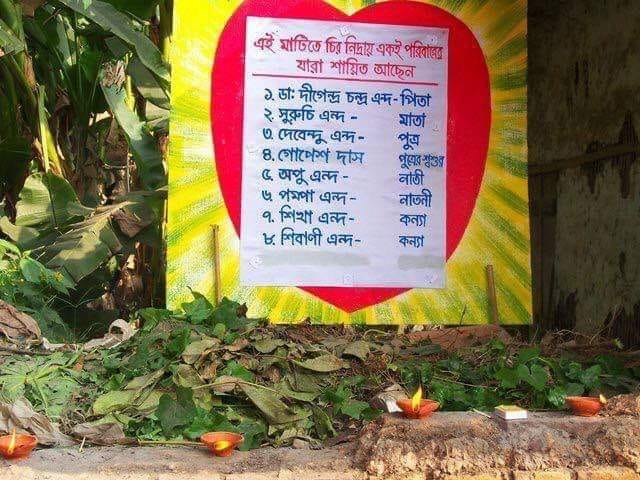 এই মাটিতে চির নিদ্রায় একই পরিবারের
যারা শায়িত আছেন
১. ডাঃ দীগেন্দ্র চন্দ্র এন্দ - পিতা
২. সুরুচি এন্দ - মাতা
৩. দেবেন্দু এন্দ - পুত্র
৪. গোপেশ দাস পুত্রের শ্বশুর
৫. অপু এন্দ - নাতী
৬. পম্পা এন্দ - নাতনী
৭. শিখা এন্দ - কন্যা
৮. শিবাণী এন্দ - কন্যা